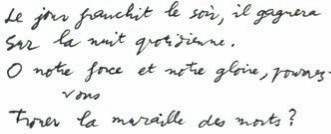 Le jour franchit le soir, il gagnera
Sur la nuit quotidienne.
O notre force et notre gloire, pourrez-
vous
Trouer la muraille des morts?